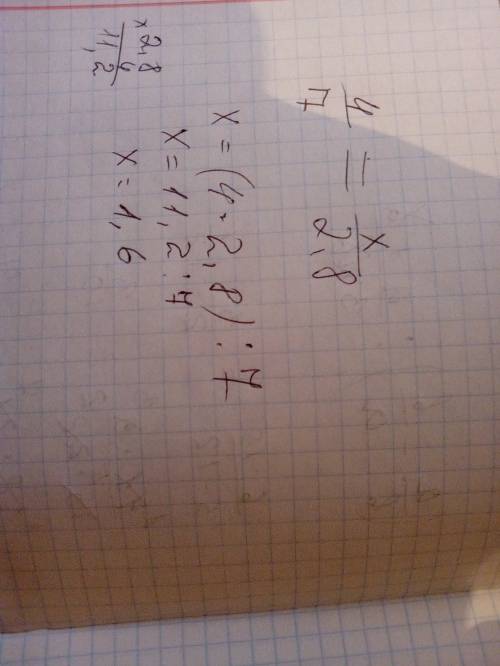 4/7 = x/2,8
x = (4 · 2,8) : 7
x = 11,2 : 7
x = 1,6
× 2,8
4
11,2